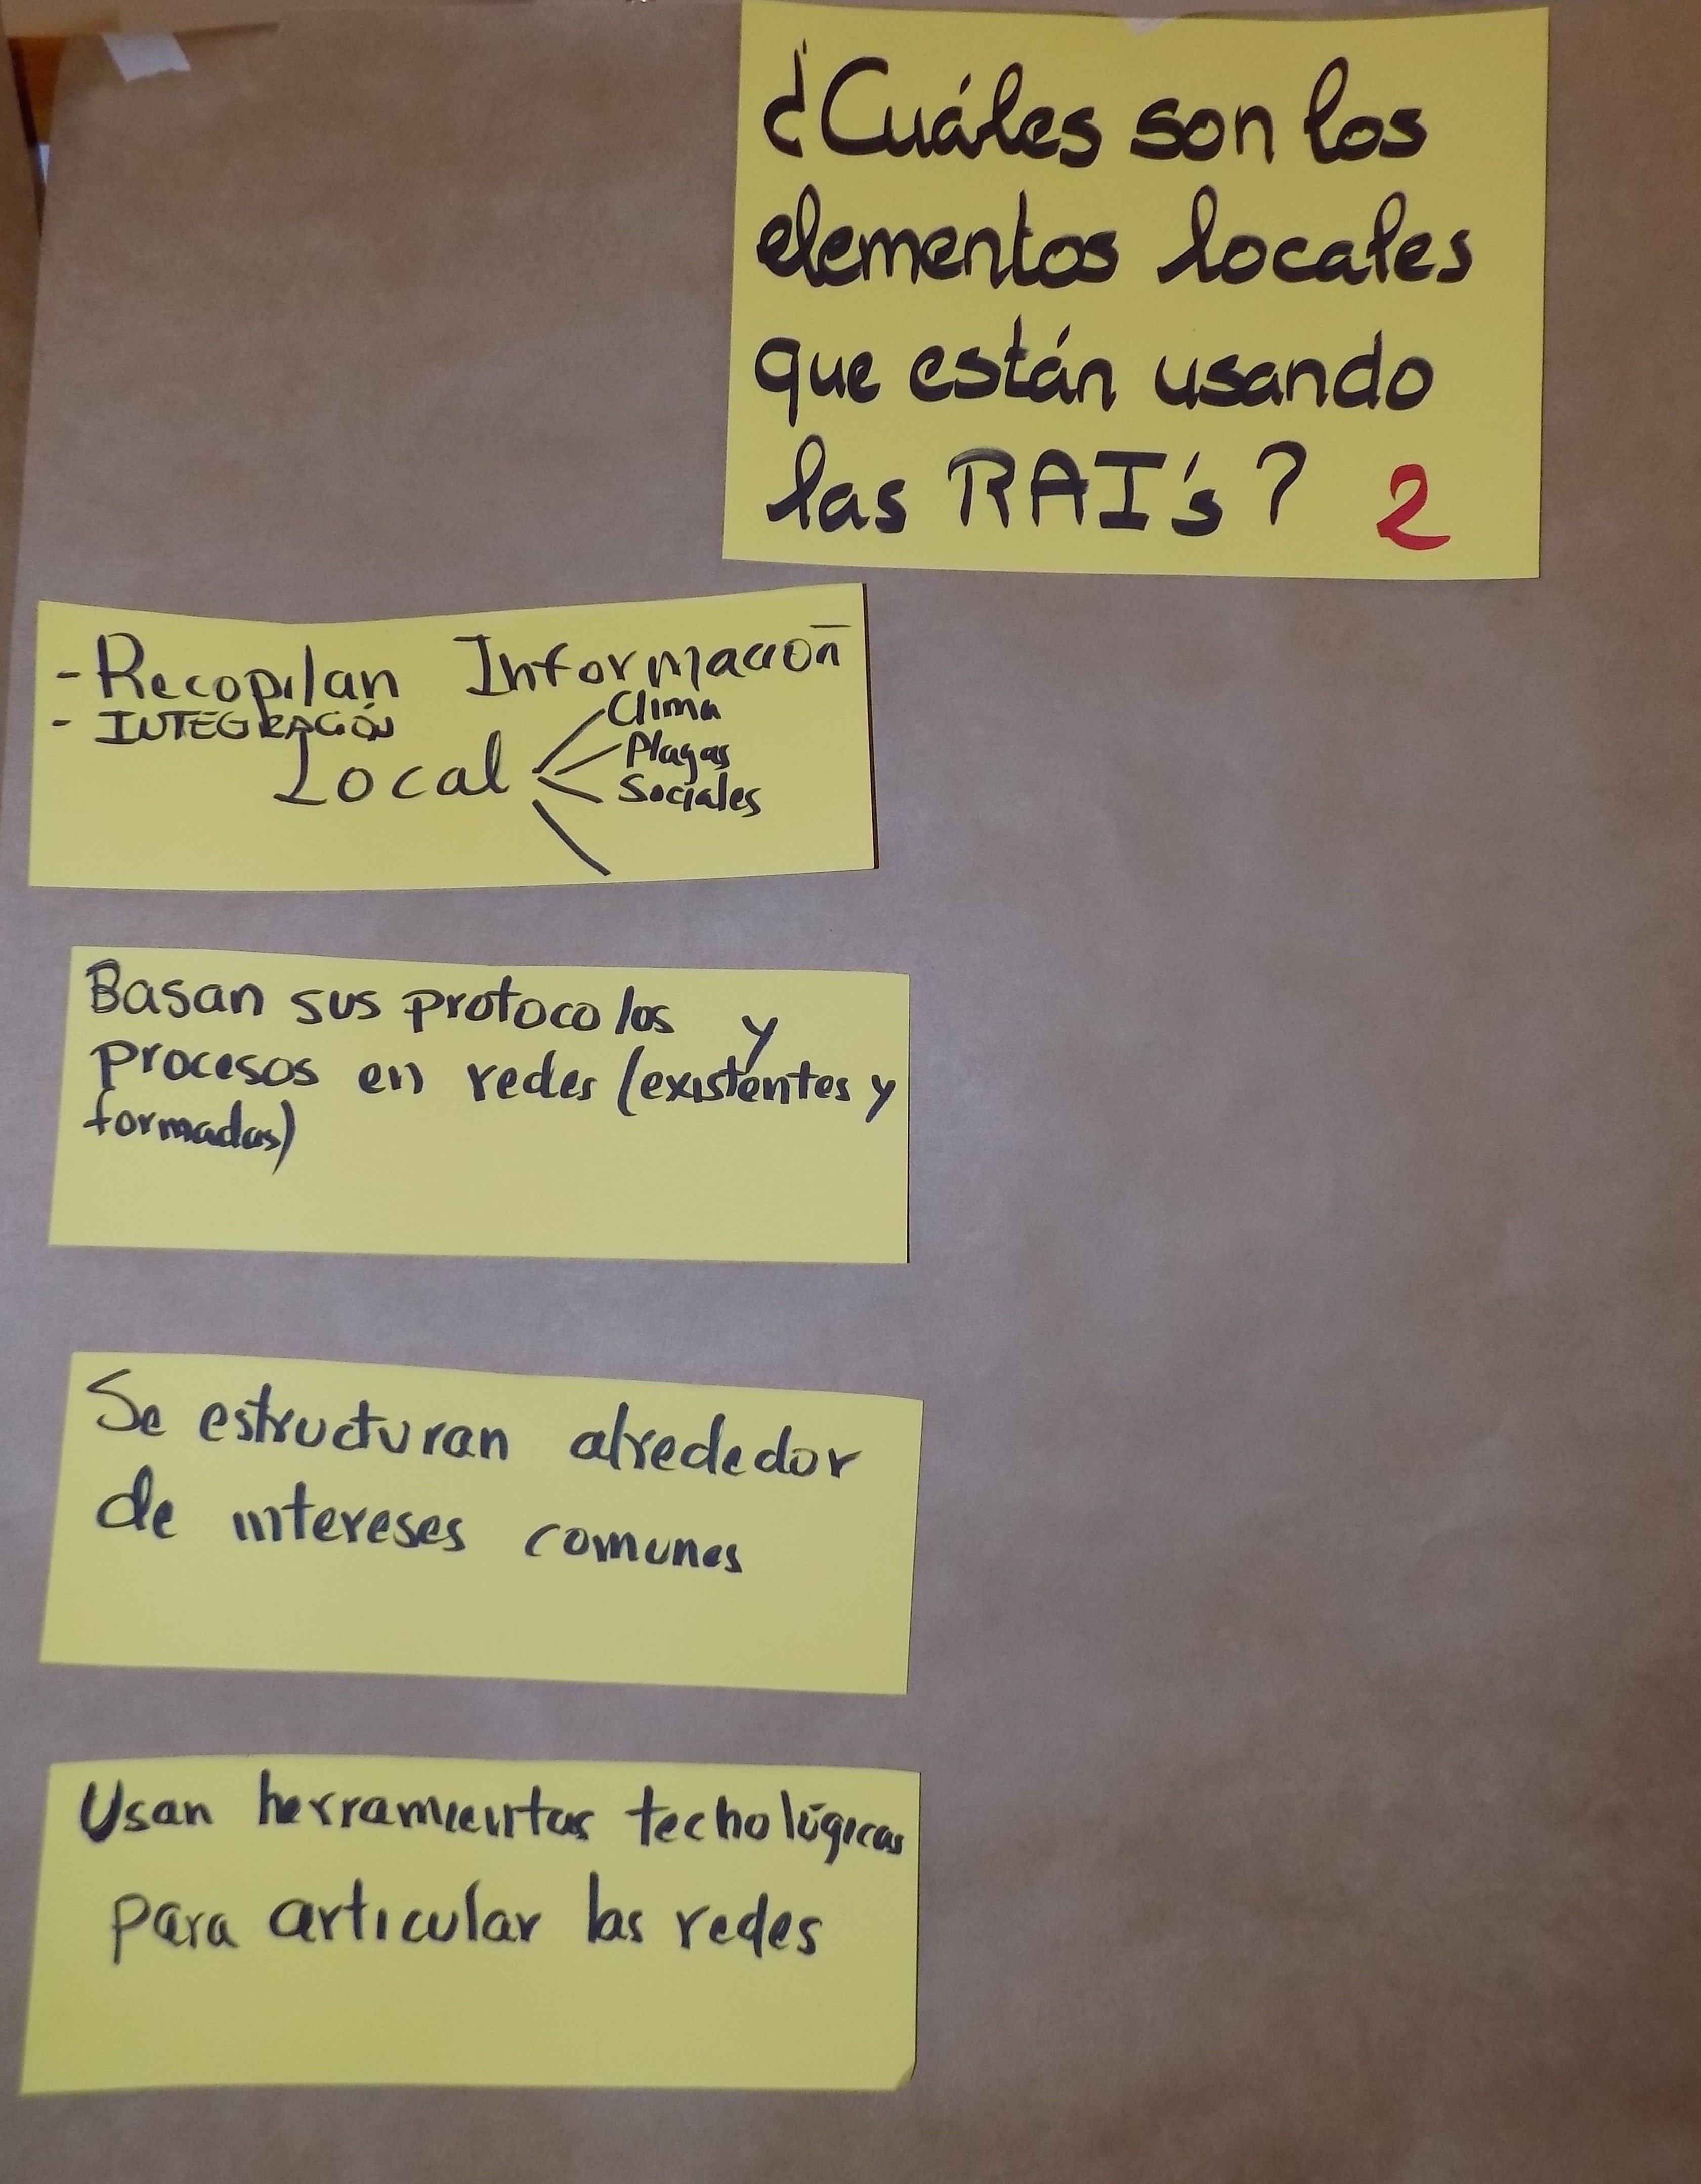 ¿Cuáles son los
elementos locales
que están usando
las RAI's? 2
- Recopilan Información
- INTEGRACIÓN
Clima
Local
Plagas
Sociales
Basan sus protocolos y
procesos en redes (existentes y
formadas)
Se estructuran alrededor
de intereses comunes
Usan herramientas techológicas
para articular las redes